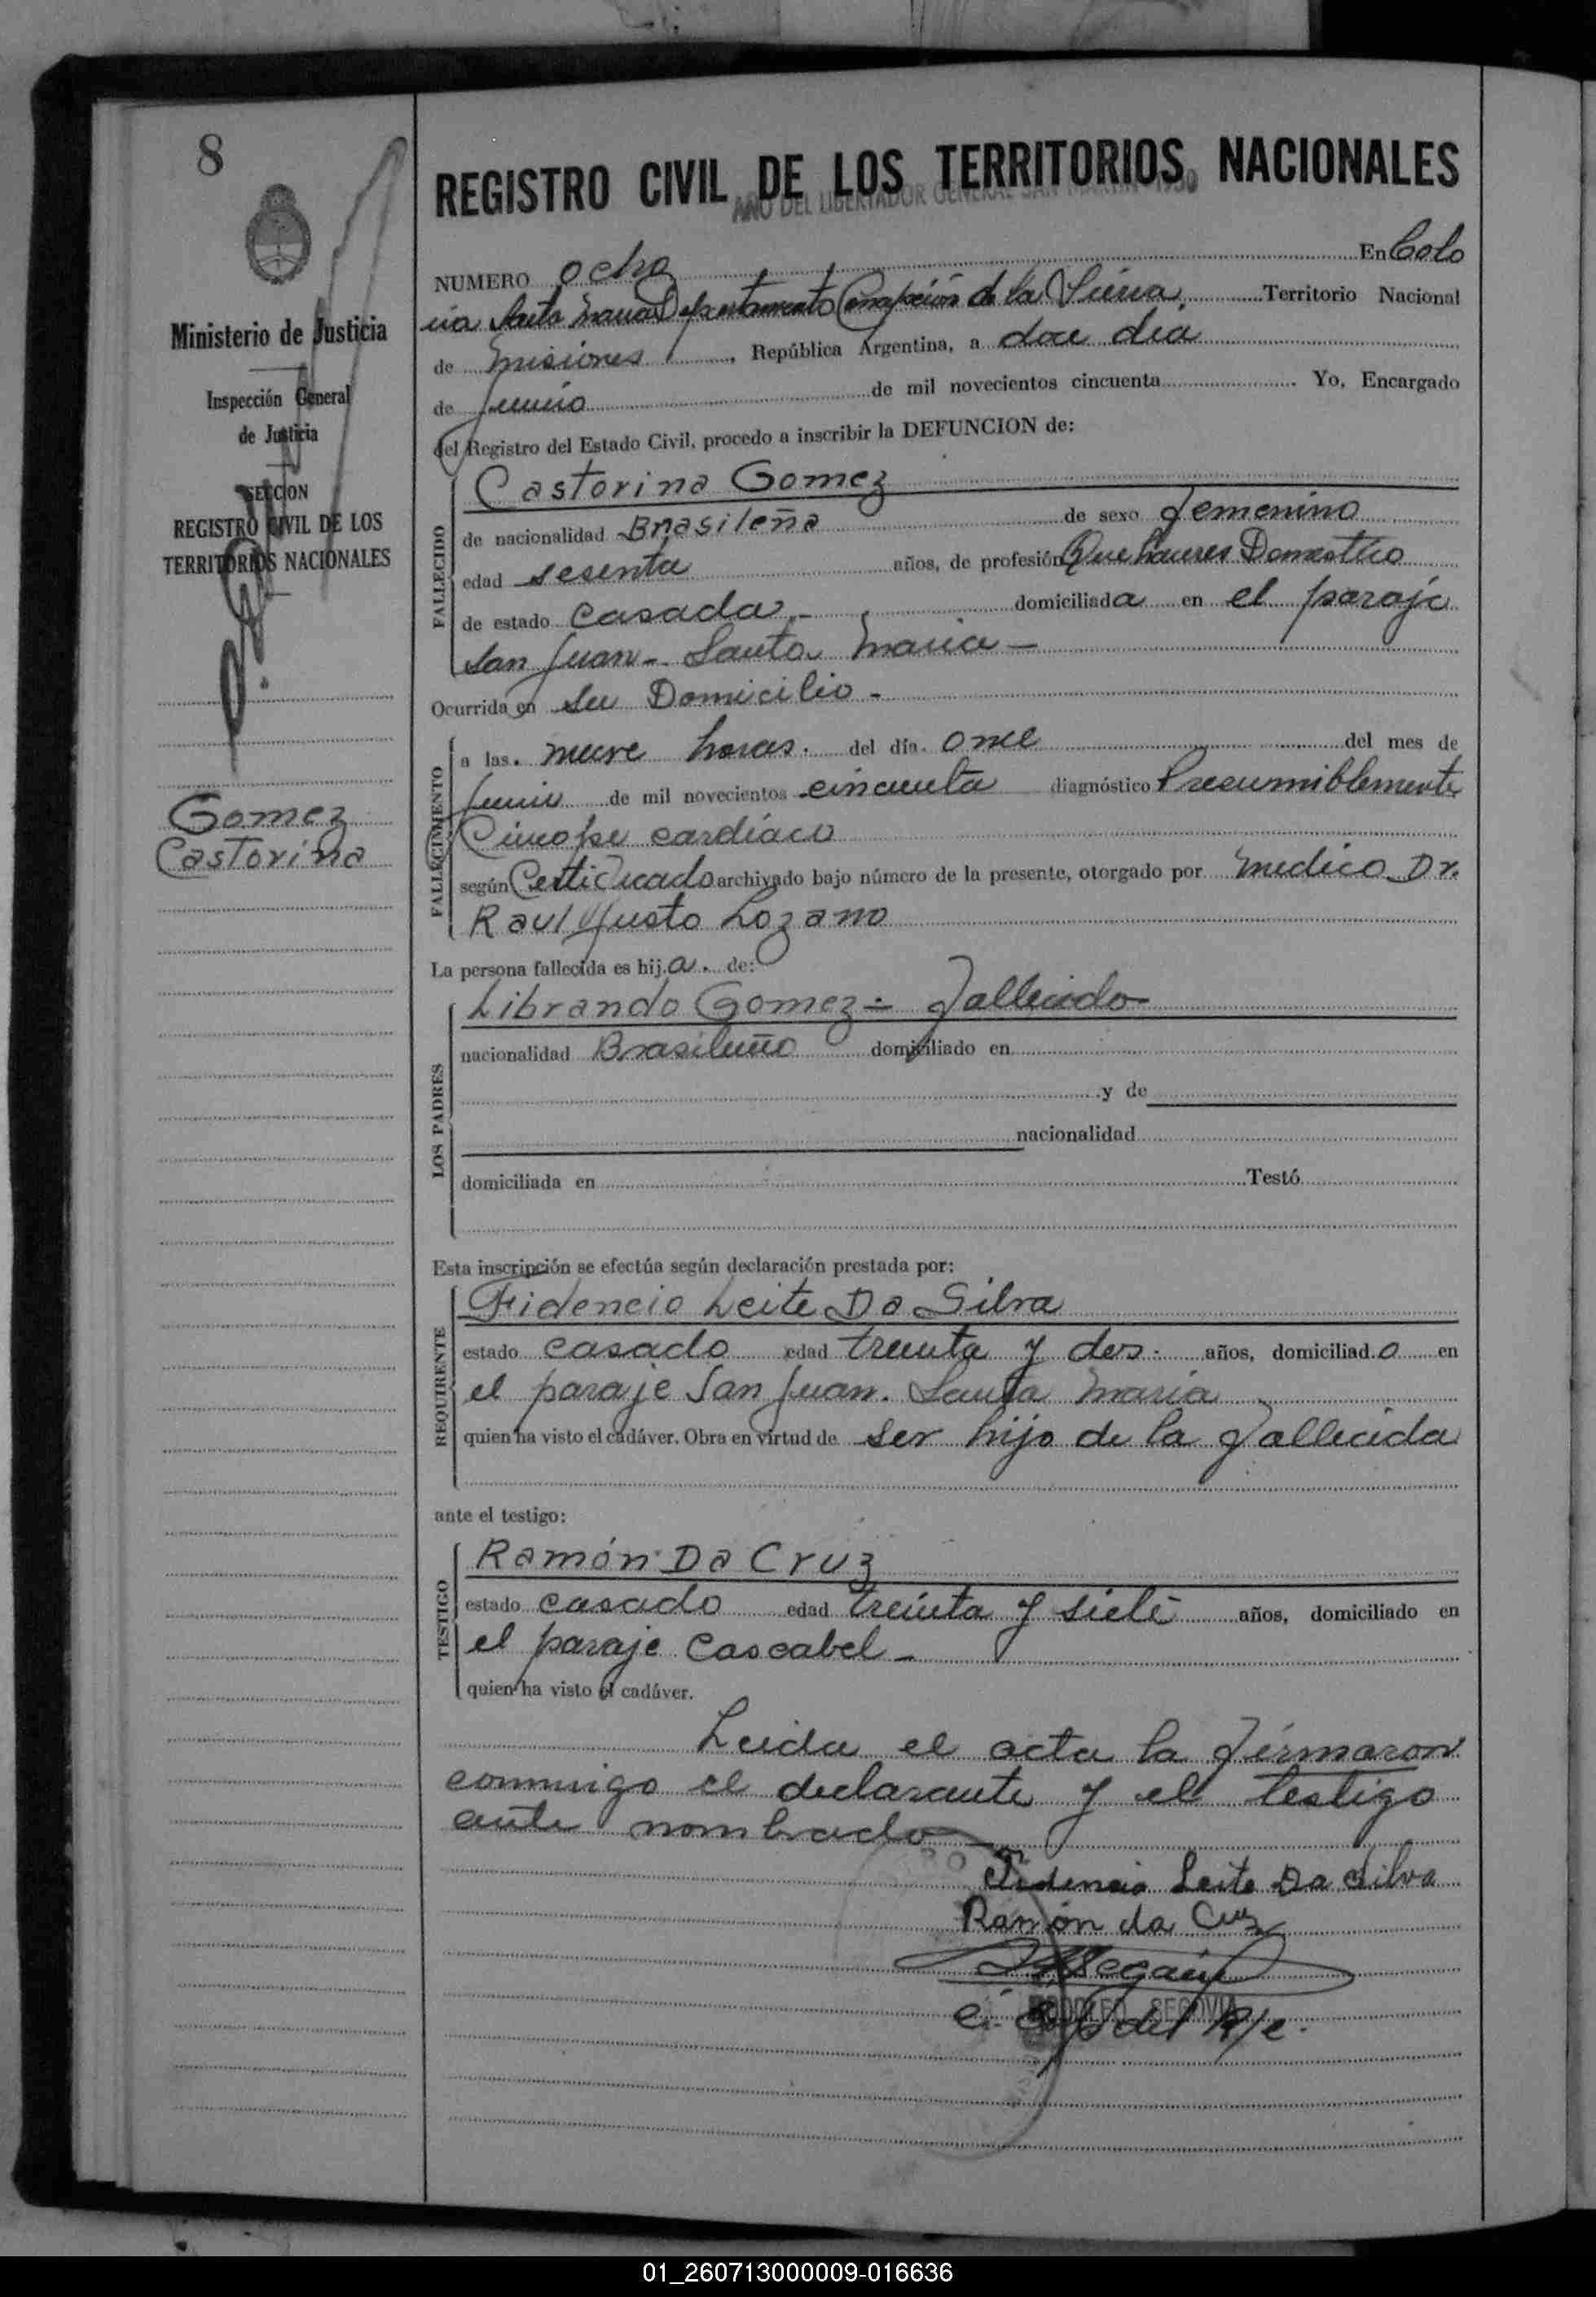 8
REGISTRO CIVIL DE LOS TERRITORIOS NACIONALES
AÑO DEL LIBERTADOR GENERAL SAN MARTIN 1950
Ministerio de Justicia
Inspección General
de Justicia
SECCION
REGISTRO CIVIL DE LOS
TERRITORIOS NACIONALES
Gomez
Castorina
NUMERO ocho En Colo
nia Santa Maria Departamento Concepción de la Sierra Territorio Nacional
de Misiones, República Argentina, a doce dia
de Junio de mil novecientos cincuenta Yo, Encargado
del Registro del Estado Civil, procedo a inscribir la DEFUNCION de:
FALLECIDO
Castorina Gomez
de nacionalidad Brasileña de sexo femenino
edad sesenta años, de profesión Quehaceres Domestico
de estado casada - domiciliada en el paraje
San Juan - Santa Maria -
Ocurrida en su Domicilio -
FALLECIMIENTO
a las. nueve horas. del día. once del mes de
Junio de mil novecientos cincuenta diagnóstico Presumiblemente
Cincope cardíaco
según Certificado archivado bajo número de la presente, otorgado por medico Dr.
Raul Justo Lozano
La persona fallecida es hija. de:
LOS PADRES
Librando Gomez = fallecido
nacionalidad Brasileño domiciliado en
y de
nacionalidad
domiciliada en Testó
Esta inscripción se efectúa según declaración prestada por:
REQUIRENTE
Fidencio Leite Da Silva
estado casado edad treinta y dos. años, domiciliado en
el paraje San Juan. Santa Maria
quien ha visto el cadáver. Obra en virtud de ser hijo de la fallecida
ante el testigo:
TESTIGO
Ramón Da Cruz
estado casado edad treinta y siete años, domiciliado en
el paraje Cascabel -
quien ha visto el cadáver.
Leida el acta la firmaron
conmigo el declarante y el testigo
ante nombrado
Fidencio Leite Da Silva
Ramón da Cruz
RODOLFO SEGOVIA
del R/c.
01_260713000009-016636